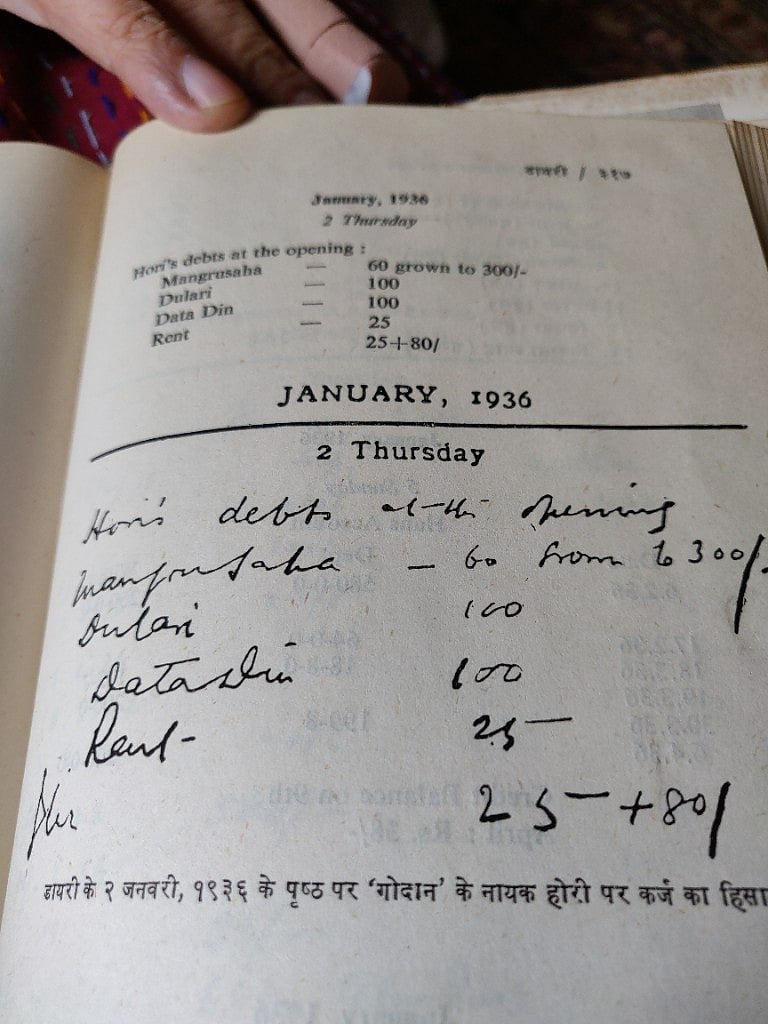 डायरी / ३१७
January, 1936
2 Thursday
Hori's debts at the opening :
Mangrusaha — 60 grown to 300/-
Dulari — 100
Data Din — 100
Rent — 25
25+80/
JANUARY, 1936
2 Thursday
Hori's debts at the opening
Mangrusaha — 60 grown to 300/-
Dulari 100
Data Din 100
Rent - 25 —
25 — +80/
डायरी के २ जनवरी, १९३६ के पृष्ठ पर 'गोदान' के नायक होरी पर कर्ज का हिसा